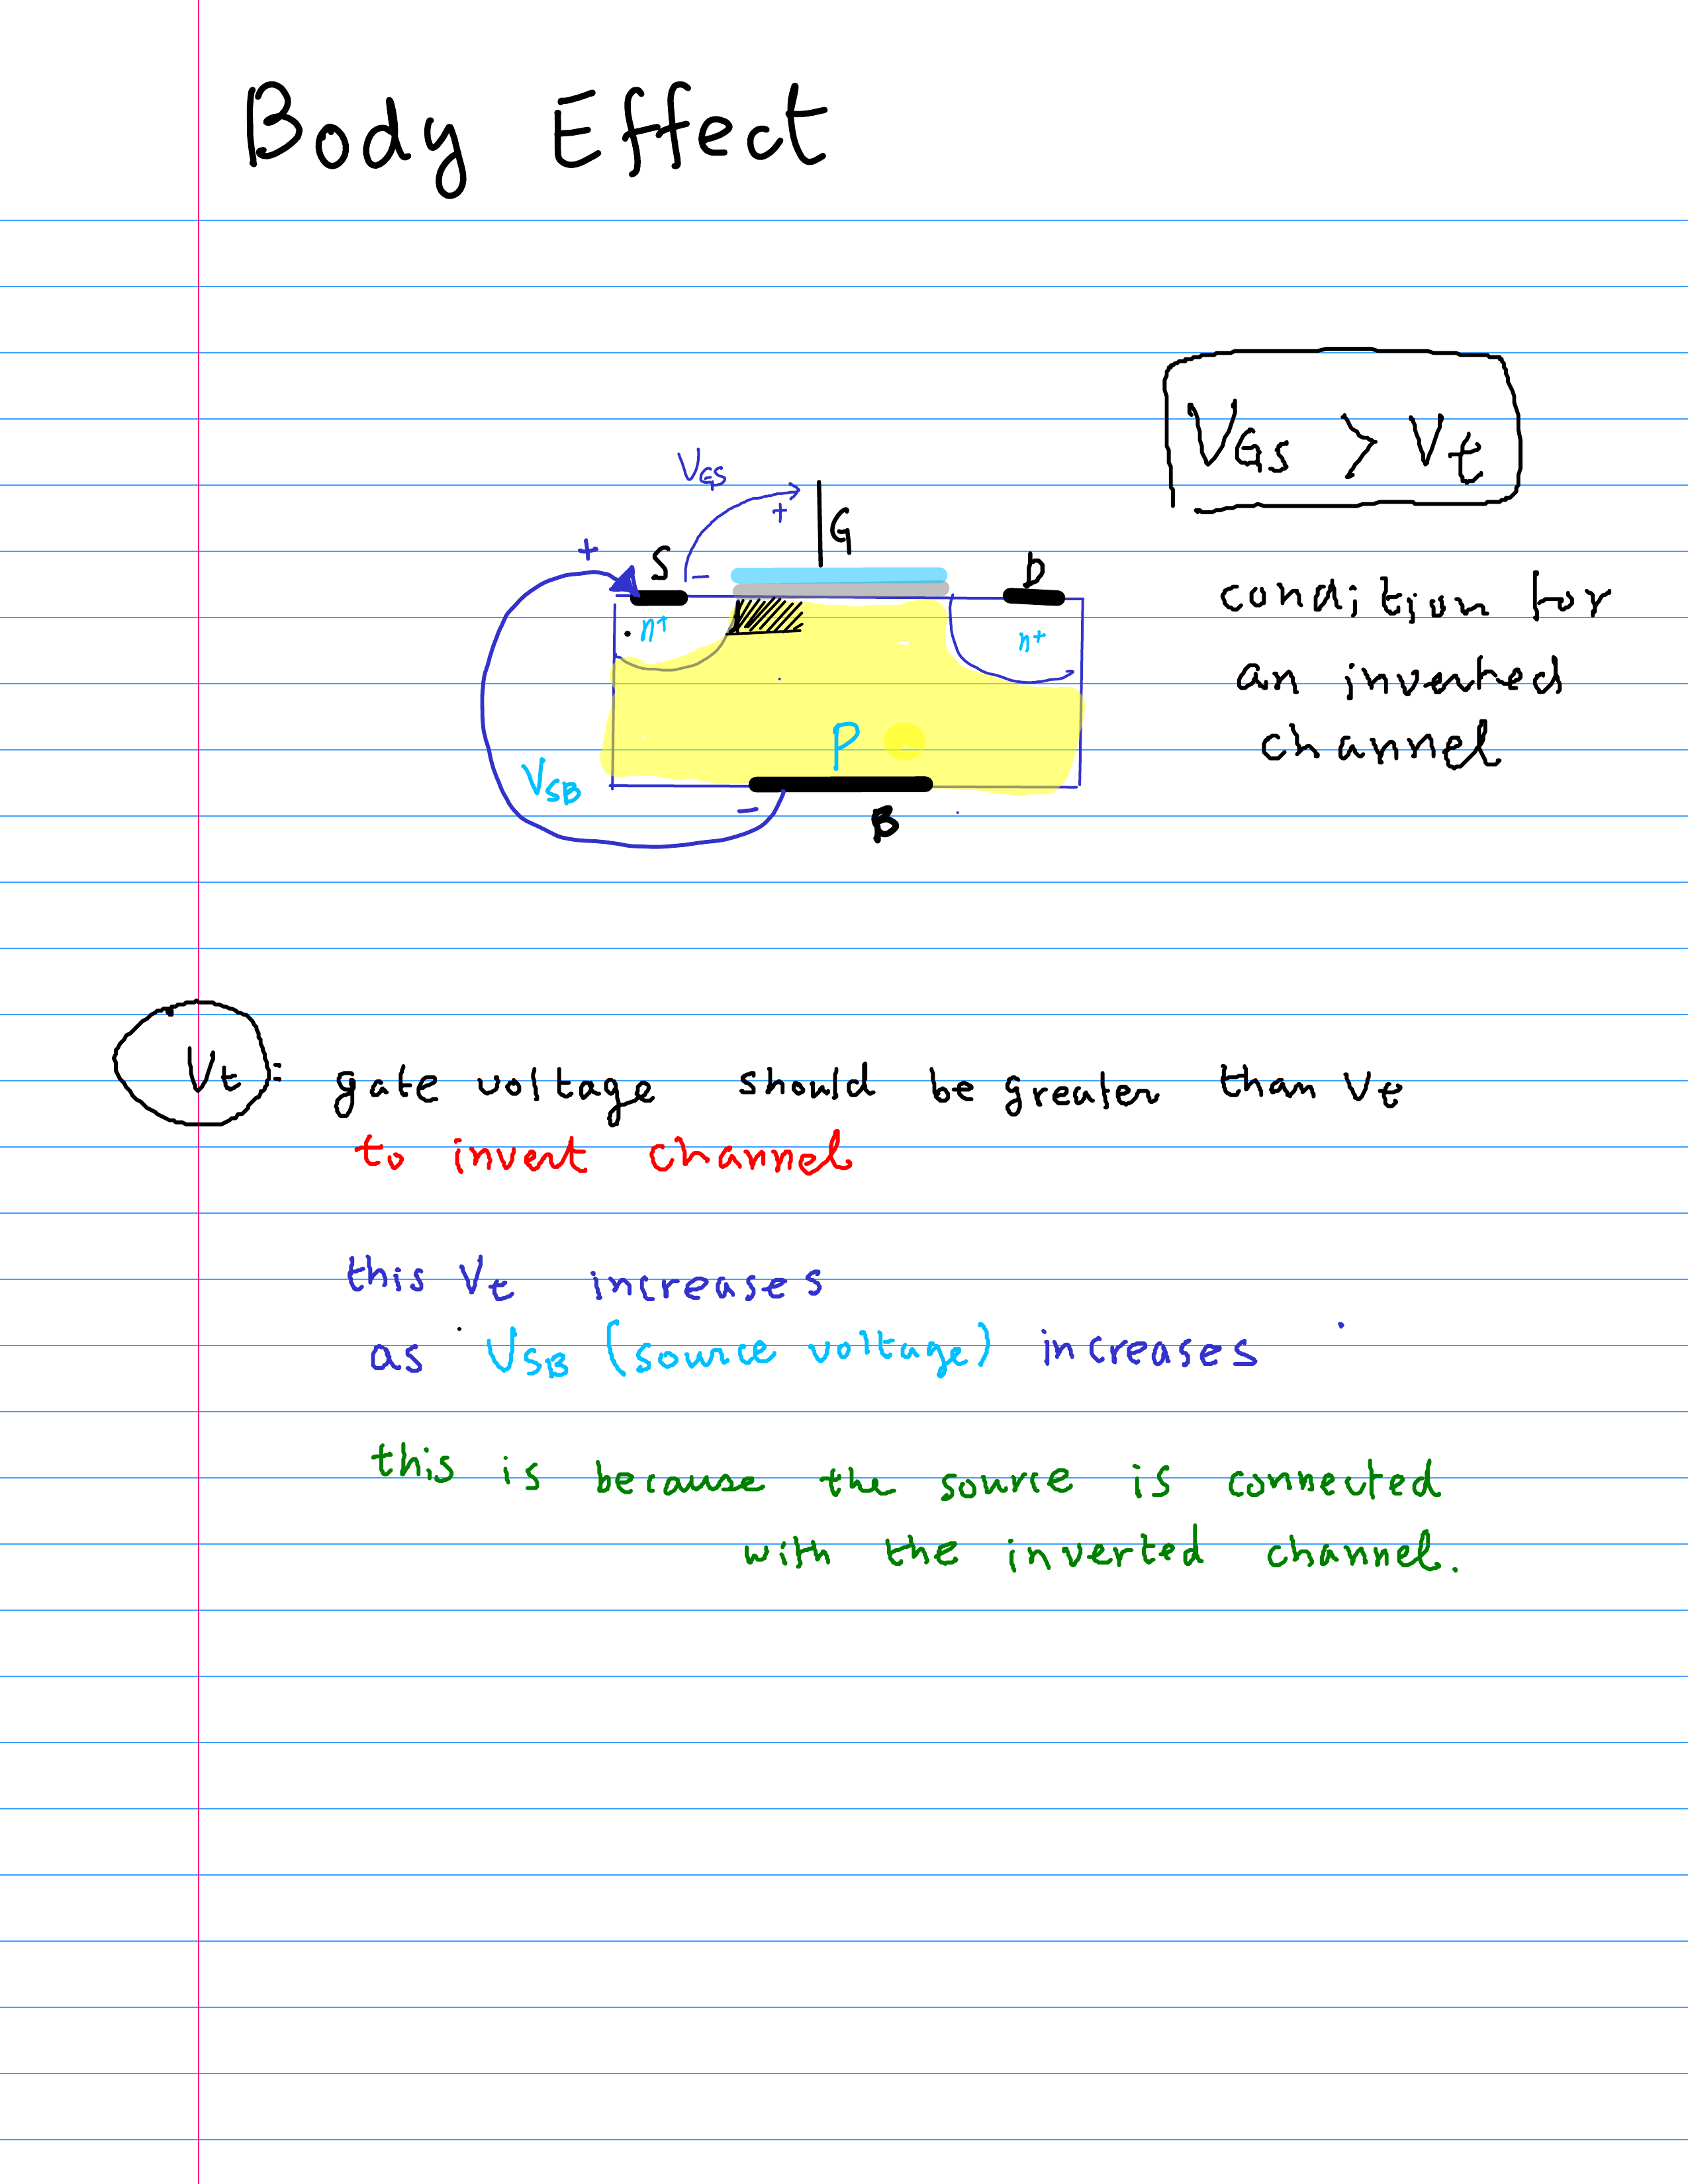 Body Effect
VGS > Vt
VGS
+
G
+
S
-
D
condition for
n+
n+
an inverted
channel
P
VSB
-
B
Vt : gate voltage should be greater than Vt
to invert channel
this Vt increases
as VSB (source voltage) increases
this is because the source is connected
with the inverted channel.